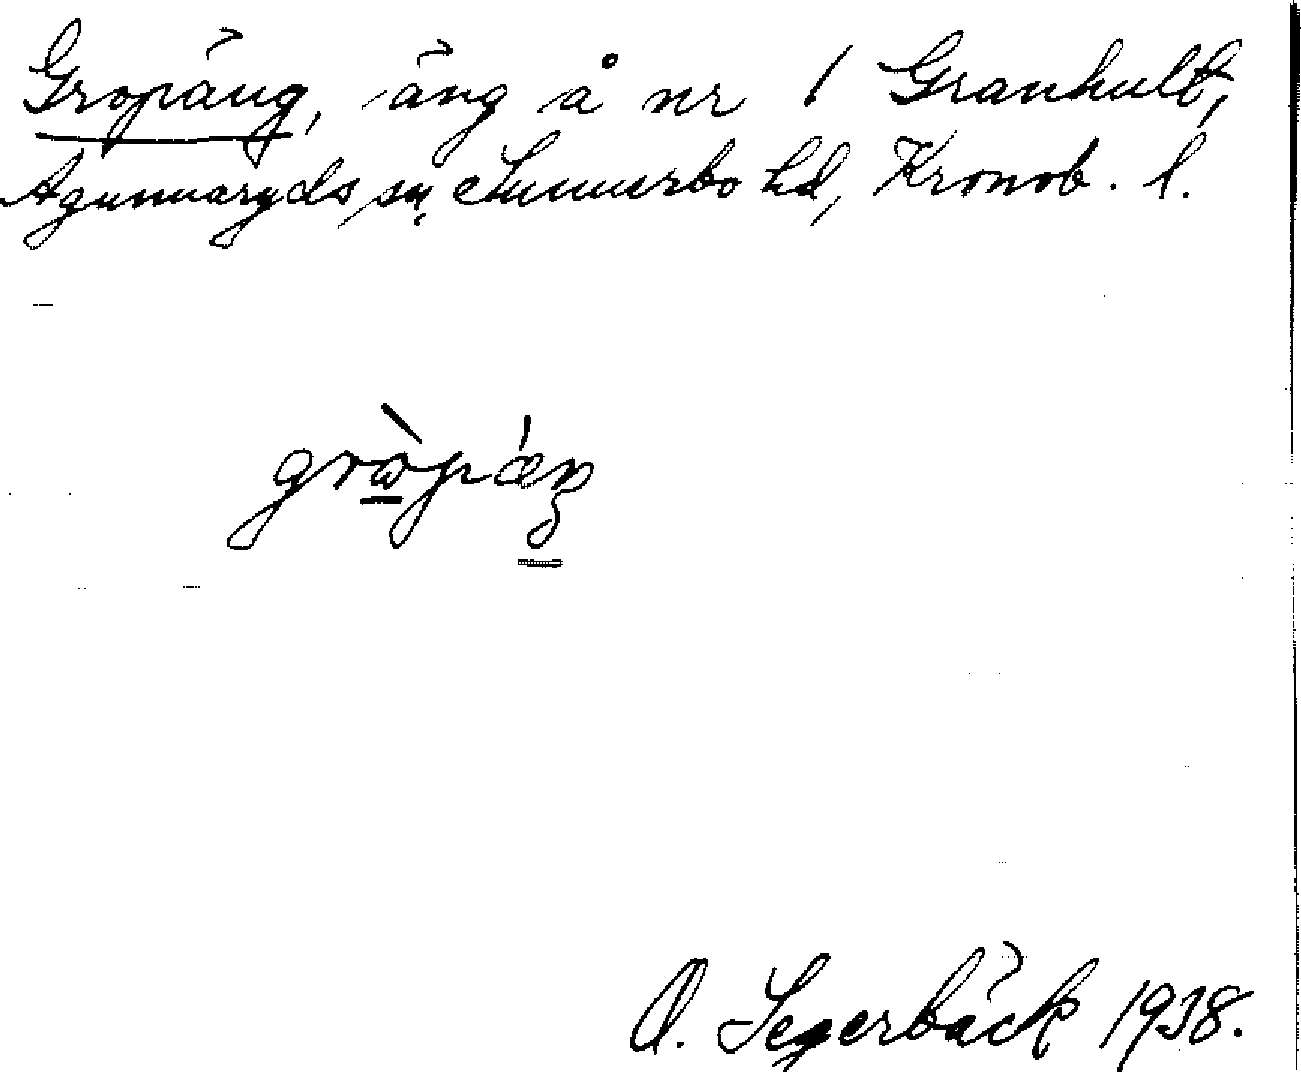 Gropäng, äng å nr 1 Granhult,
Agunnaryds sn, Sunnerbo hd, Kronob. l.
grὼ̠pǽŋ
O. Segerbäck 1938.